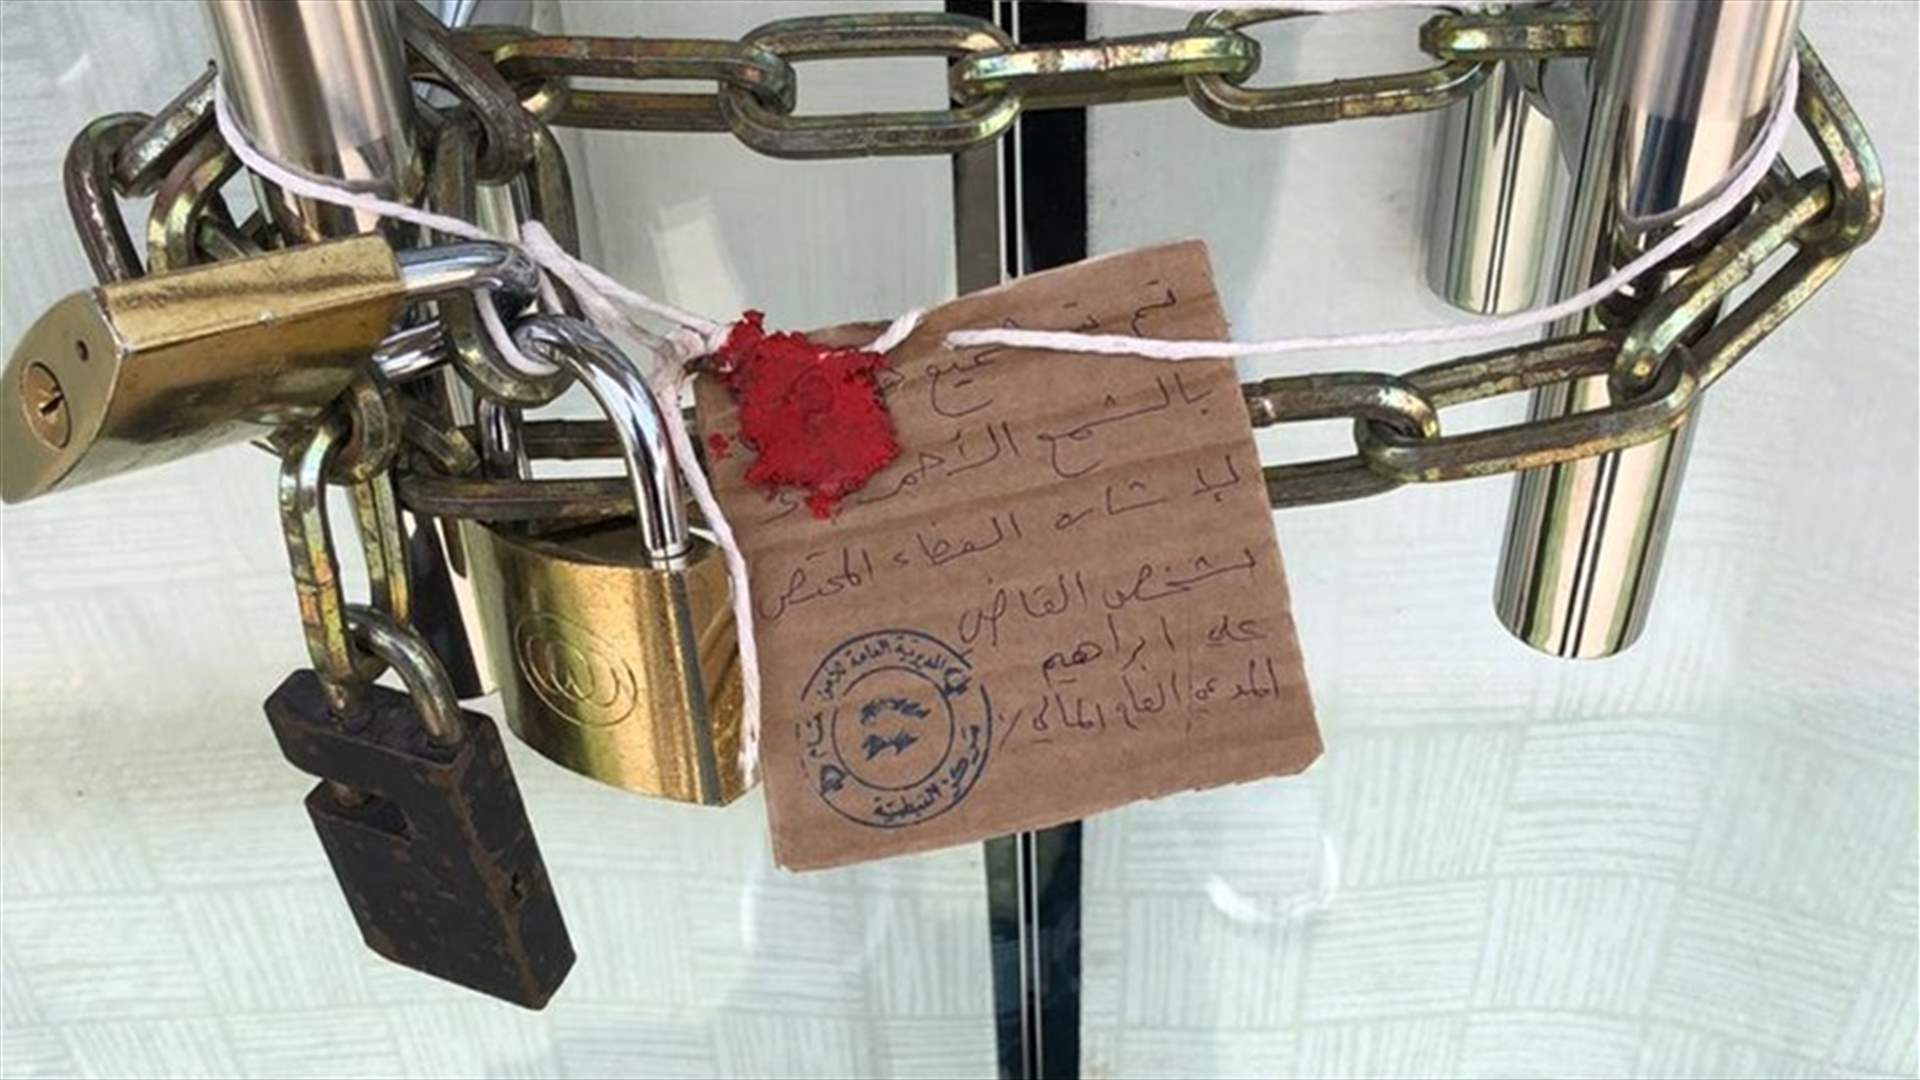 تم
بالشمع الأحمر
بناء لإشارة القضاء المختص
بشخص القاضي
علي ابراهيم
المدعي العام المالي
المديرية العامة لأمن الدولة
النبطية